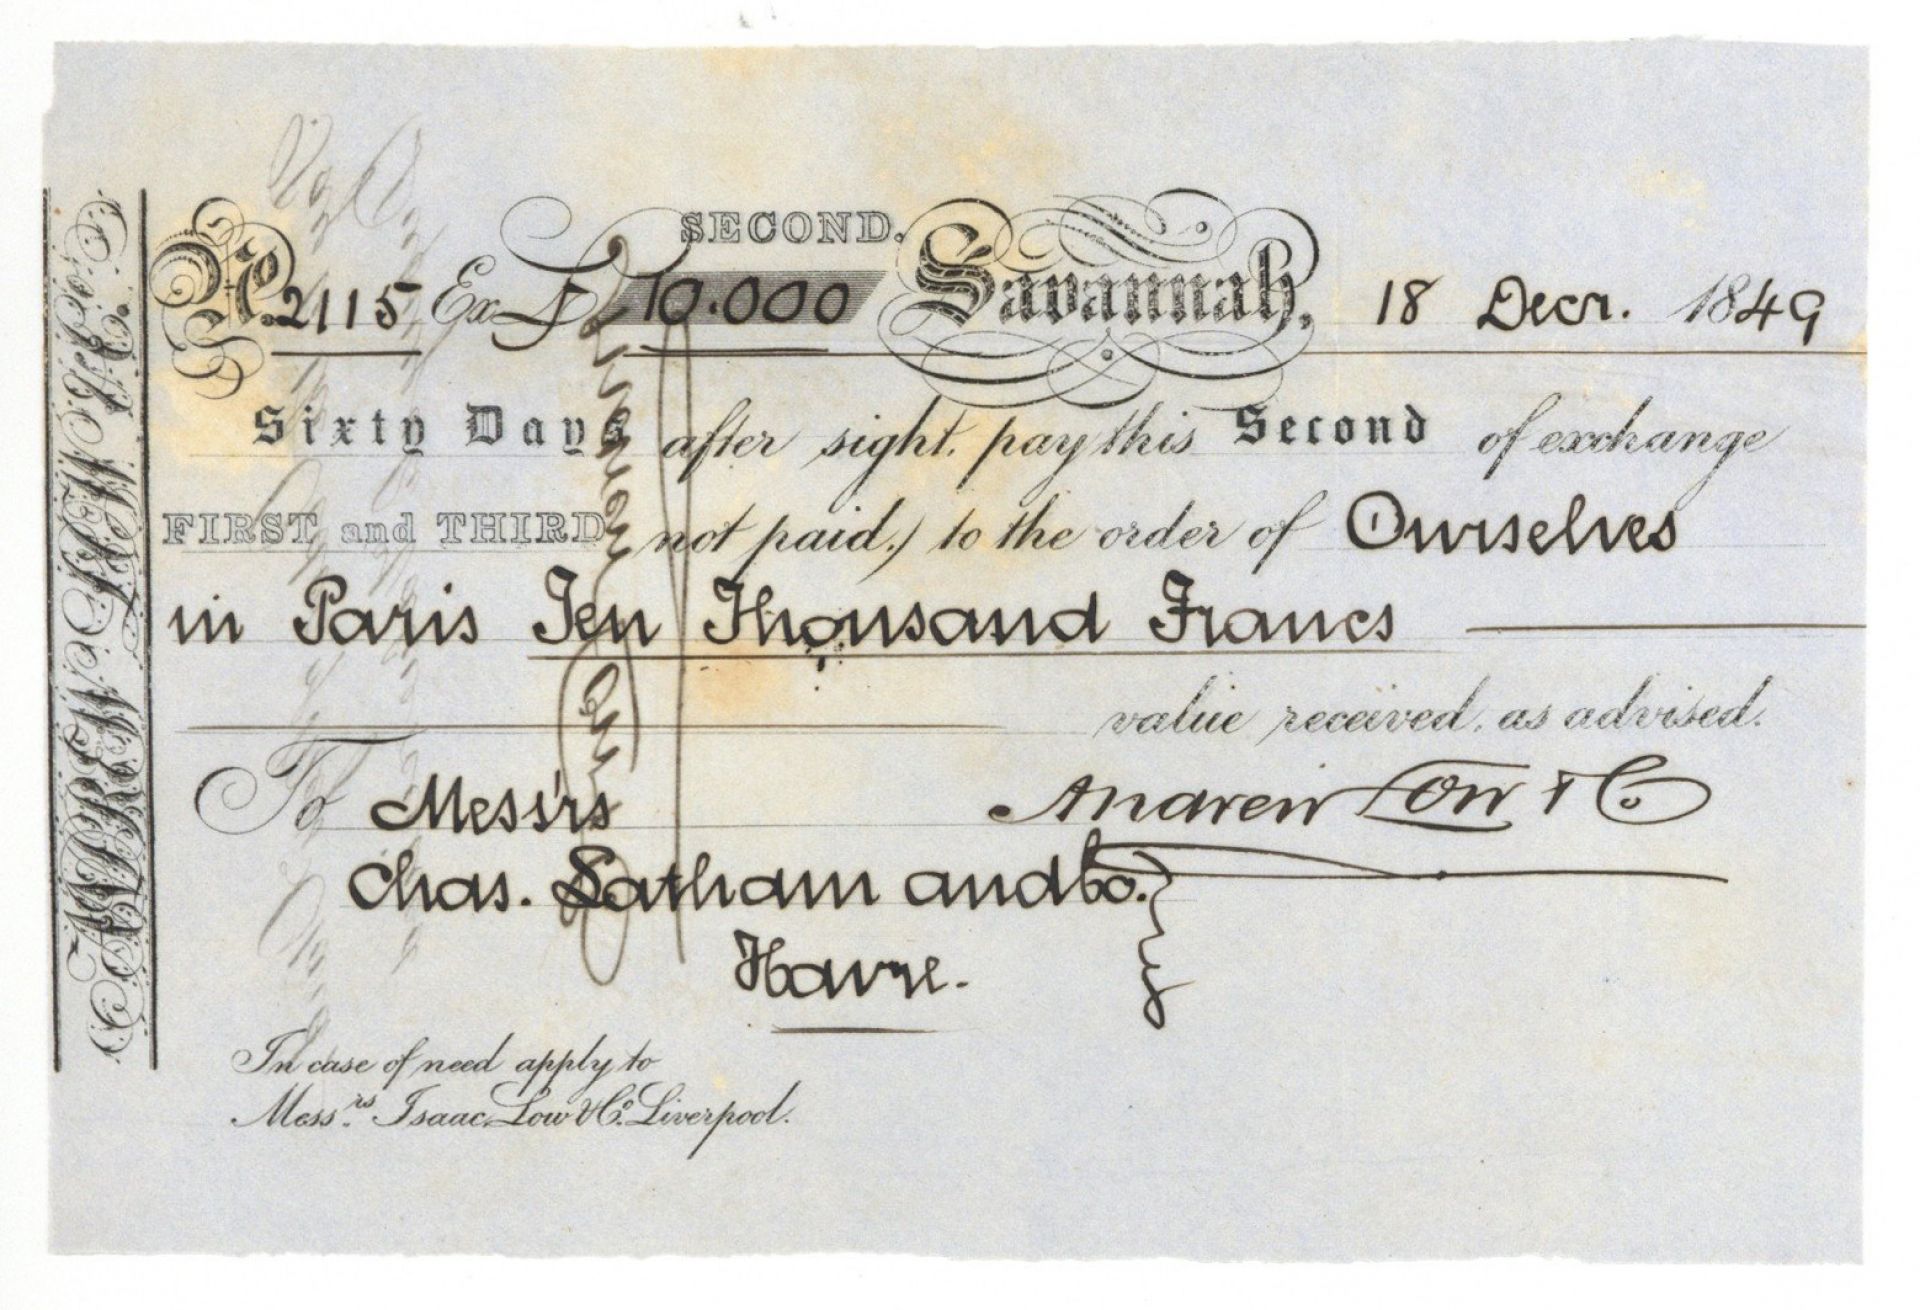 ANDREW LOW & Co.
SECOND.
No. 2115 Ex F 10.000 Savannah, 18 Decr. 1849
Sixty Days after sight, pay this Second of exchange
FIRST and THIRD not paid,) to the order of Ourselves
in Paris Ten Thousand Francs
value received, as advised.
To Mess'rs Andrew Low & Co
Chas. Latham and Co.
Havre.
In case of need apply to
Messrs. Isaac, Low & Co. Liverpool.